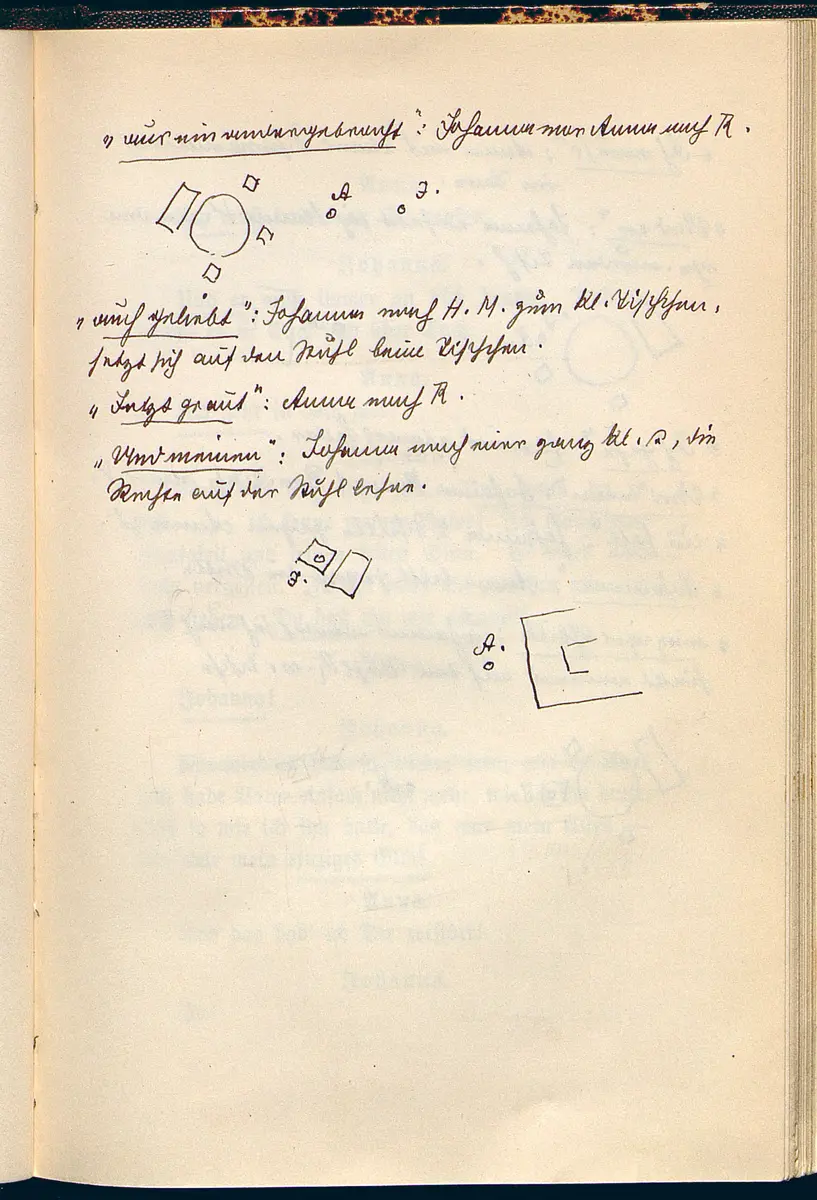 „auseinandergebracht“: Johanna vor Anna nach R.
A J.
„auch geliebt“: Johanna nach H. M. zum kl. Tischchen,
setzt sich auf den Stuhl beim Tischchen.
„Jetzt graut“: Anna nach R.
„Und meinen“: Johanna nach einer ganz kl. P., die
Rechte auf der Stuhllehne.
J.
A.